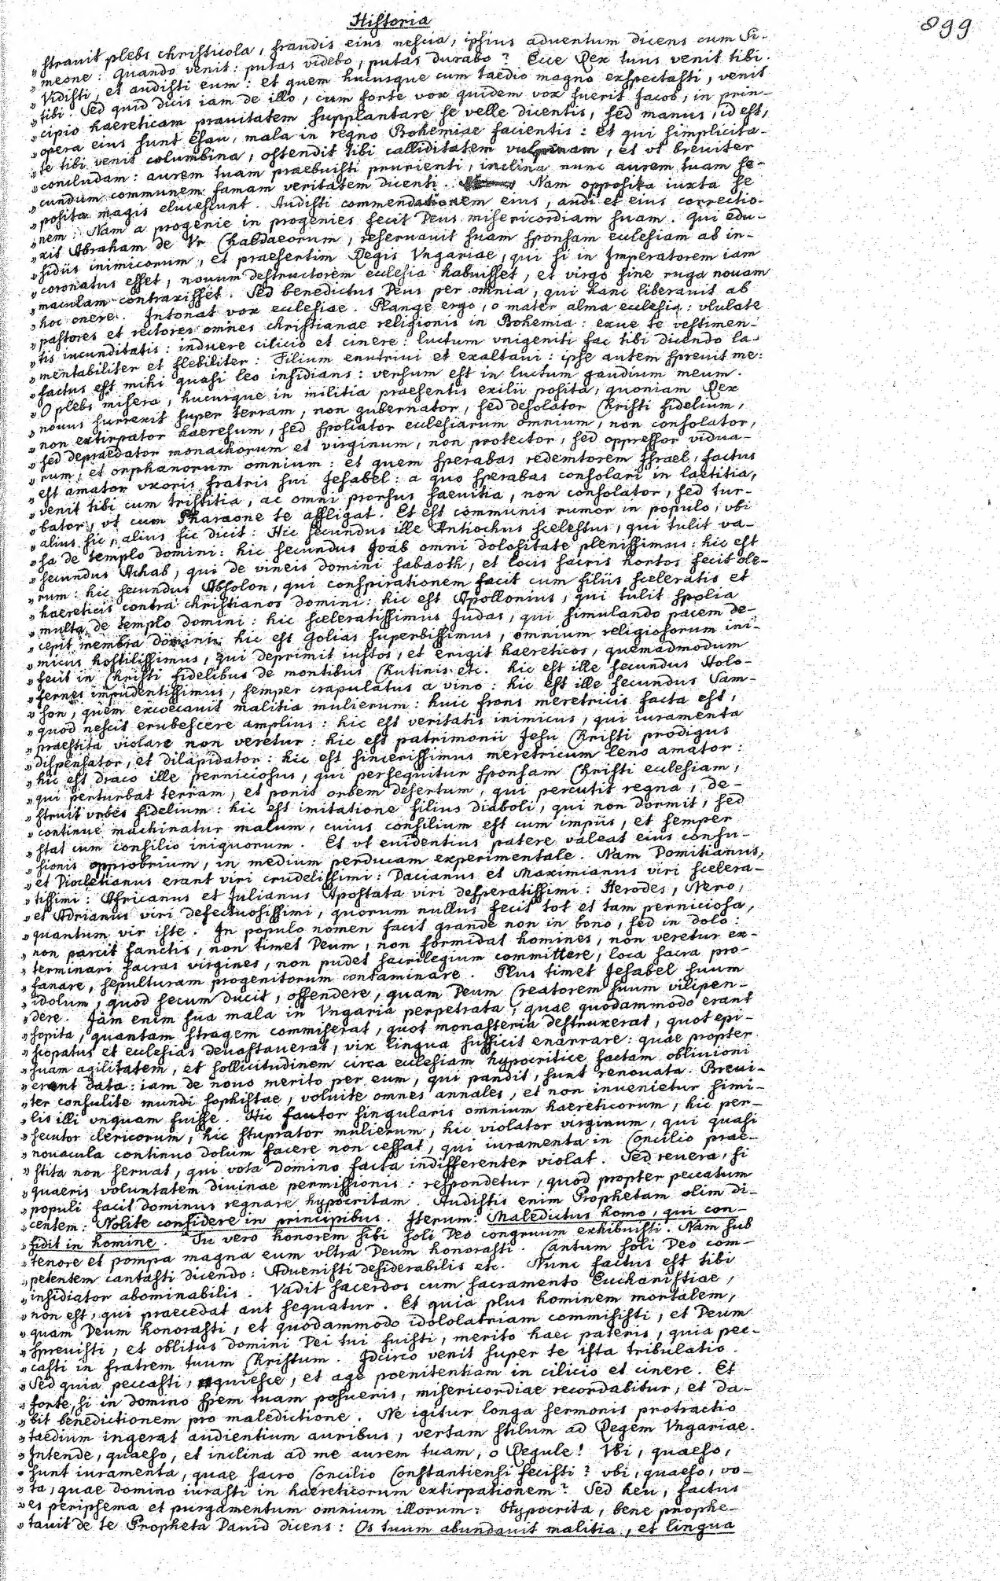 Historia
899
„ stravit plebs christicola, fraudis eius nescia, ipsius adventum dicens cum Si-
„ meone: Quando venit: putas videbo, putas durabo? Ecce Rex tuus venit tibi.
„ Vidisti, et audisti eum: et quem hucusque cum taedio magno exspectasti, venit
„ tibi. Sed quid dicis iam de illo, cum forte vox quidem vox fuerit Jacob, in prin-
„ cipio haereticam pravitatem supplantare se velle dicentis, sed manus, id est,
„ opera eius sunt Esau, mala in regno Bohemiae facientis: et qui simplicita-
„ te tibi venit columbina, ostendit tibi calliditatem vulpinam, et vt breviter
„ concludam: aurem tuam praebuisti prurienti, inclina nunc aurem tuam se-
„ cundum communem famam veritatem dicenti. Nam opposita iuxta se
„ posita magis elucescunt. Audisti commendationem eius, audi et eius correctio-
„ nem: Nam a progenie in progenies fecit Deus misericordiam suam. Qui edu-
„ xit Abraham de Vr Chaldaeorum, reservauit suam sponsam ecclesiam ab in-
„ sidiis inimicorum, et praesertim Regis Vngariae, qui si in Imperatorem iam
„ coronatus esset, nouum destructorem ecclesia habuisset, et virgo sine ruga nouam
„ maculam contraxisset. Sed benedictus Deus per omnia, qui hanc liberauit ab
„ hoc onere. Intonat vox ecclesiae. Plange ergo, o mater alma ecclesia, vlulate
„ pastores et rectores omnes christianae religionis in Bohemia: exue te vestimen-
„ tis iucunditatis: induere cilicio et cinere: luctum vnigeniti fac tibi dicendo la-
„ mentabiliter et flebiliter: Filium enutrivi et exaltaui: ipse autem spreuit me:
„ factus est mihi quasi leo insidians: versum est in luctum gaudium meum.
„ O plebs misera, hucusque in militia praesentis exilii posita, quoniam Rex
„ nouus surrexit super terram, non gubernator, sed desolator Christi fidelium,
„ non extirpator haeresum, sed spoliator ecclesiarum omnium, non consolator,
„ sed depraedator monachorum et virginum, non protector, sed oppressor vidua-
„ rum, et orphanorum omnium: et quem sperabas redemtorem Israel, factus
„ est amator vxoris fratris sui Jesabel: a quo sperabas consolari in laetitia,
„ venit tibi cum tristitia, ac omni prorsus saeuitia, non consolator, sed tur-
„ bator, vt cum Pharaone te affligat. Et est communis rumor in populo, vbi
„ alius sic, alius sic dicit: Hic secundus ille Antiochus scelestus, qui tulit va-
„ sa de templo domini: hic secundus Joab omni dolositate plenissimus: hic est
„ secundus Achab, qui de vineis domini sabaoth, et locis sacris hortos fecit ole-
„ rum: hic secundus Absolon, qui conspirationem facit cum filiis sceleratis et
„ haereticis contra christianos domini: hic est Apollonius, qui tulit spolia
„ multa de templo domini: hic sceleratissimus Judas, qui simulando pacem de-
„ cepit membra domini: hic est Golias superbissimus, omnium religiosorum ini-
„ micus hostilissimus, qui deprimit iustos, et erigit haereticos, quemadmodum
„ fecit in Christi fidelibus de montibus Chutinis etc. hic est ille secundus Holo-
„ fernes impudentissimus, semper crapulatus a vino: hic est ille secundus Sam-
„ son, quem excoecauit malitia mulierum: huic frons meretricis facta est,
„ quod nescit erubescere amplius: hic est veritatis inimicus, qui iuramenta
„ praestita violare non veretur: hic est patrimonii Jesu Christi prodigus
„ dispensator, et dilapidator: hic est sincerissimus meretricum leno amator:
„ hic est draco ille perniciosus, qui persequitur sponsam Christi ecclesiam,
„ qui perturbat terram, et ponit orbem desertum, qui percutit regna, de-
„ struit vrbes fidelium: hic est imitatione filius diaboli, qui non dormit, sed
„ continue machinatur malum, cuius consilium est cum impiis, et semper
„ stat cum consilio iniquorum. Et vt euidentius patere valeat eius confu-
„ sionis opprobrium, in medium perducam experimentale. Nam Domitianus,
„ et Diocletianus erant viri crudelissimi: Dacianus et Maximianus viri scelera-
„ tissimi: Africanus et Julianus Apostata viri desperatissimi: Herodes, Nero,
„ et Adrianus viri defectuosissimi, quorum nullus fecit tot et tam perniciosa,
„ quantum vir iste. In populo nomen facit grande non in bono, sed in dolo:
„ non parcit sanctis, non timet Deum, non formidat homines, non veretur ex-
„ terminari sacras virgines, non pudet sacrilegium committere, loca sacra pro-
„ fanare, sepulturam progenitorum contaminare. Plus timet Jesabel suum
„ idolum, quod secum ducit, offendere, quam Deum Creatorem suum vilipen-
„ dere. Jam enim sua mala in Vngaria perpetrata, quae quodammodo erant
„ sopita, quantam stragem commiserat, quot monasteria destruxerat, quot epi-
„ scopatus et ecclesias deuastauerat, vix lingua sufficit enarrare: quae propter
„ suam agilitatem, et sollicitudinem circa ecclesiam hypocritice factam obliuioni
„ erant data: iam de nouo merito per eum, qui pandit, sunt renouata. Breui-
„ ter consulite mundi sophistae, voluite omnes annales, et non invenietur simi-
„ lis illi vnquam fuisse. Hic fautor singularis omnium haereticorum, hic per-
„ secutor clericorum, hic stuprator mulierum, hic violator virginum, qui quasi
„ nouacula continuo dolum facere non cessat, qui iuramenta in Concilio prae-
„ stita non seruat, qui vota domino facta indifferenter violat. Sed reuera, si
„ quaeris voluntatem diuinae permissionis: respondetur, quod propter peccatum
„ populi facit dominus regnare hypocritam. Audistis enim Prophetam olim di-
„ centem: Nolite confidere in principibus. Iterum: Maledictus homo, qui con-
„ fidit in homine. Tu vero honorem sibi soli Deo congruum exhibuisti. Nam sub
„ tenore et pompa magna eum vltra Deum honorasti. Cantum soli Deo com-
„ petentem cantasti dicendo: Advenisti desiderabilis etc. Nunc factus est tibi
„ insidiator abominabilis. Vadit sacerdos cum sacramento Eucharistiae,
„ non est, qui praecedat aut sequatur. Et quia plus hominem mortalem,
„ quam Deum honorasti, et quodammodo idololatriam commisisti, et Deum
„ spreuisti, et oblitus domini Dei tui fuisti, merito haec pateris, quia pec-
„ casti in fratrem tuum Christum. Idcirco venit super te ista tribulatio.
„ Sed quia peccasti, quiesce, et age poenitentiam in cilicio et cinere. Et
„ forte, si in domino spem tuam posueris, misericordiae recordabitur, et da-
„ bit benedictionem pro maledictione. Ne igitur longa sermonis protractio
„ taedium ingerat audientium auribus, vertam stilum ad Regem Vngariae.
„ Intende, quaeso, et inclina ad me aurem tuam, o Regule! Vbi, quaeso,
„ sunt iuramenta, quae sacro Concilio Constantiensi fecisti? vbi, quaeso, vo-
„ ta, quae domino iurasti in haereticorum extirpationem? Sed heu, factus
„ es peripsema et purgamentum omnium illorum: Hypocrita, bene prophe-
„ tauit de te Propheta Dauid dicens: Os tuum abundauit malitia, et lingua